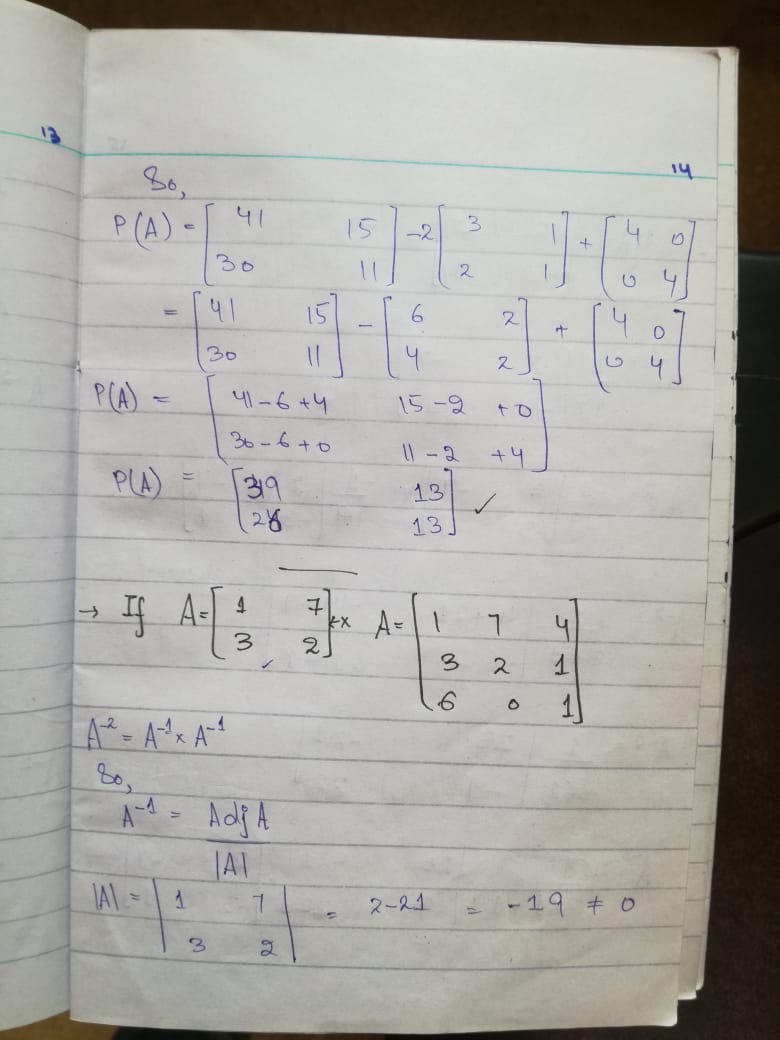 13
14
So,
P(A) = [41 15; 30 11] -2 [3 1; 2 1] + [4 0; 0 4]
= [41 15; 30 11] - [6 2; 4 2] + [4 0; 0 4]
P(A) = [41-6+4 15-2+0; 30-6+0 11-2+4]
P(A) = [39 13; 26 13] ✓
→ If A = [1 7; 3 2] A = [1 7 4; 3 2 1; 6 0 1]
A⁻² = A⁻¹ × A⁻¹
So,
A⁻¹ = Adj A
|A|
|A| = |1 7; 3 2| = 2-21 = -19 ≠ 0